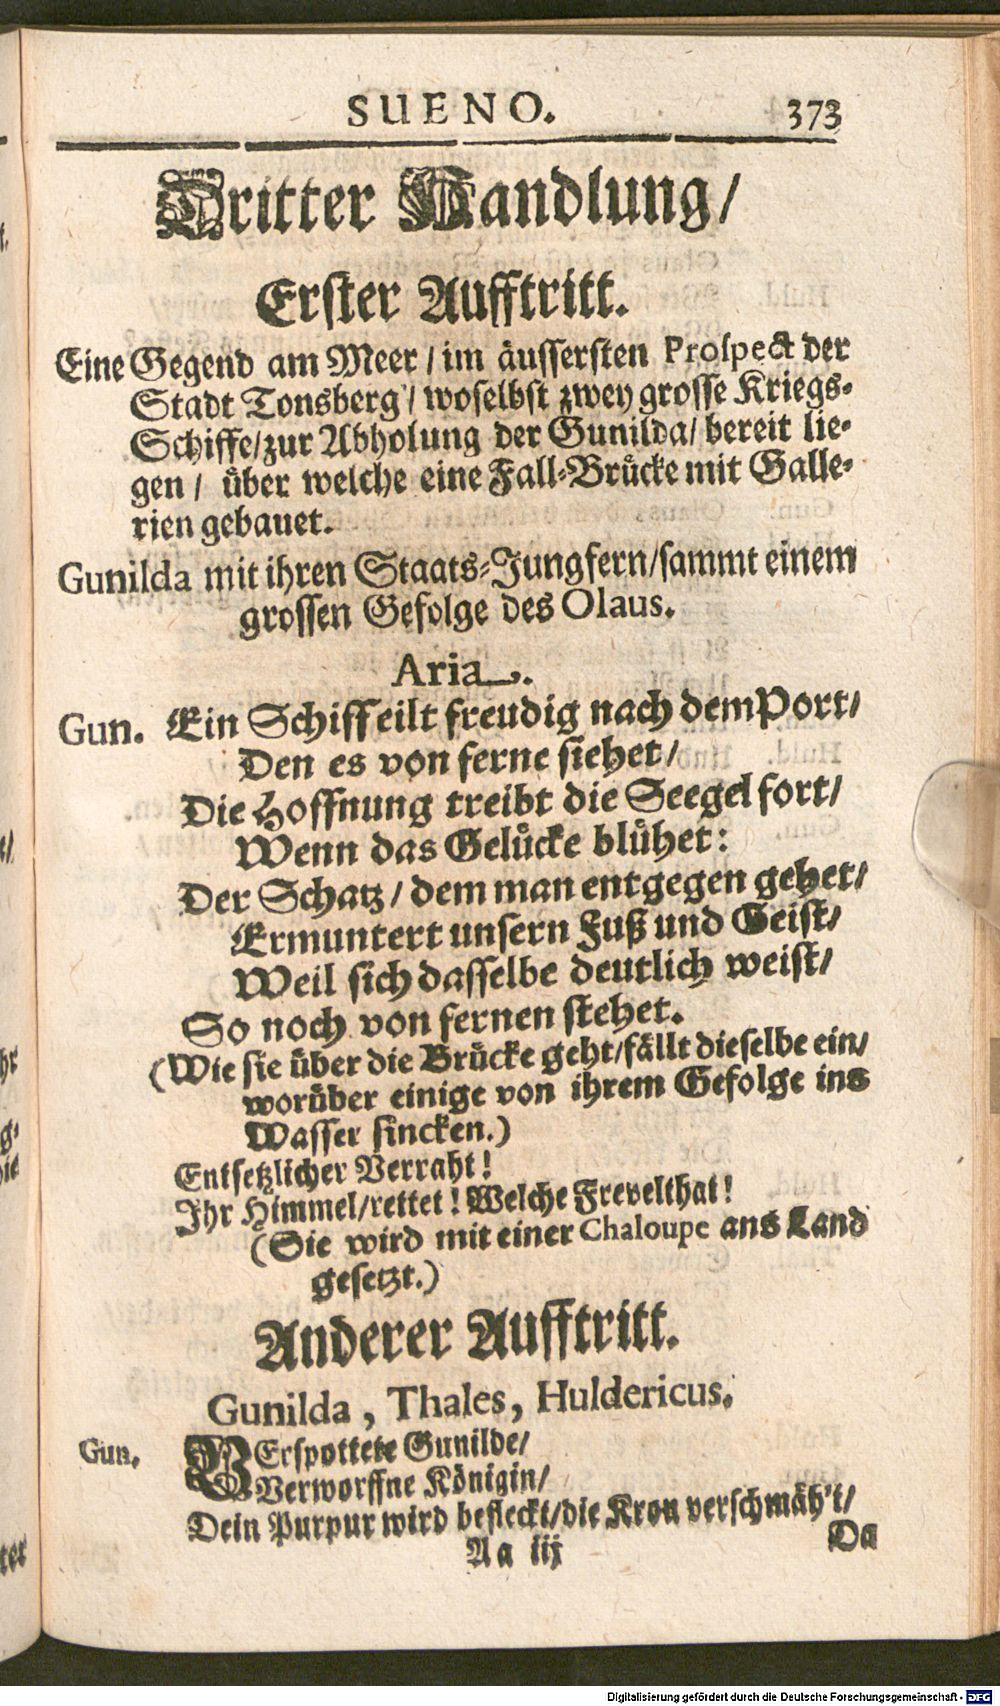 SUENO. 373
Dritter Handlung/
Erster Aufftritt.
Eine Gegend am Meer / im äussersten Prospect der
Stadt Tonsberg / woselbst zwey grosse Kriegs-
Schiffe/zur Abholung der Gunilda/ bereit lie-
gen / über welche eine Fall-Brücke mit Galle-
rien gebauet.
Gunilda mit ihren Staats-Jungfern/sammt einem
grossen Gefolge des Olaus.
Aria.
Gun. Ein Schiff eilt freudig nach dem Port/
Den es von ferne siehet/
Die Hoffnung treibt die Seegel fort/
Wenn das Gelücke blühet:
Der Schatz / dem man entgegen gehet/
Ermuntert unsern Fuß und Geist/
Weil sich dasselbe deutlich weist/
So noch von fernen stehet.
(Wie sie über die Brücke geht/fällt dieselbe ein/
worüber einige von ihrem Gefolge ins
Wasser sincken.)
Entsetzlicher Verraht!
Ihr Himmel/rettet! Welche Frevelthat!
(Sie wird mit einer Chaloupe ans Land
gesetzt.)
Anderer Aufftritt.
Gunilda, Thales, Huldericus.
Gun. VErspottete Gunilde/
Verworffne Königin/
Dein Purpur wird befleckt/die Kron verschmäh't/
Aa iij Da
Digitalisierung gefördert durch die Deutsche Forschungsgemeinschaft - DFG